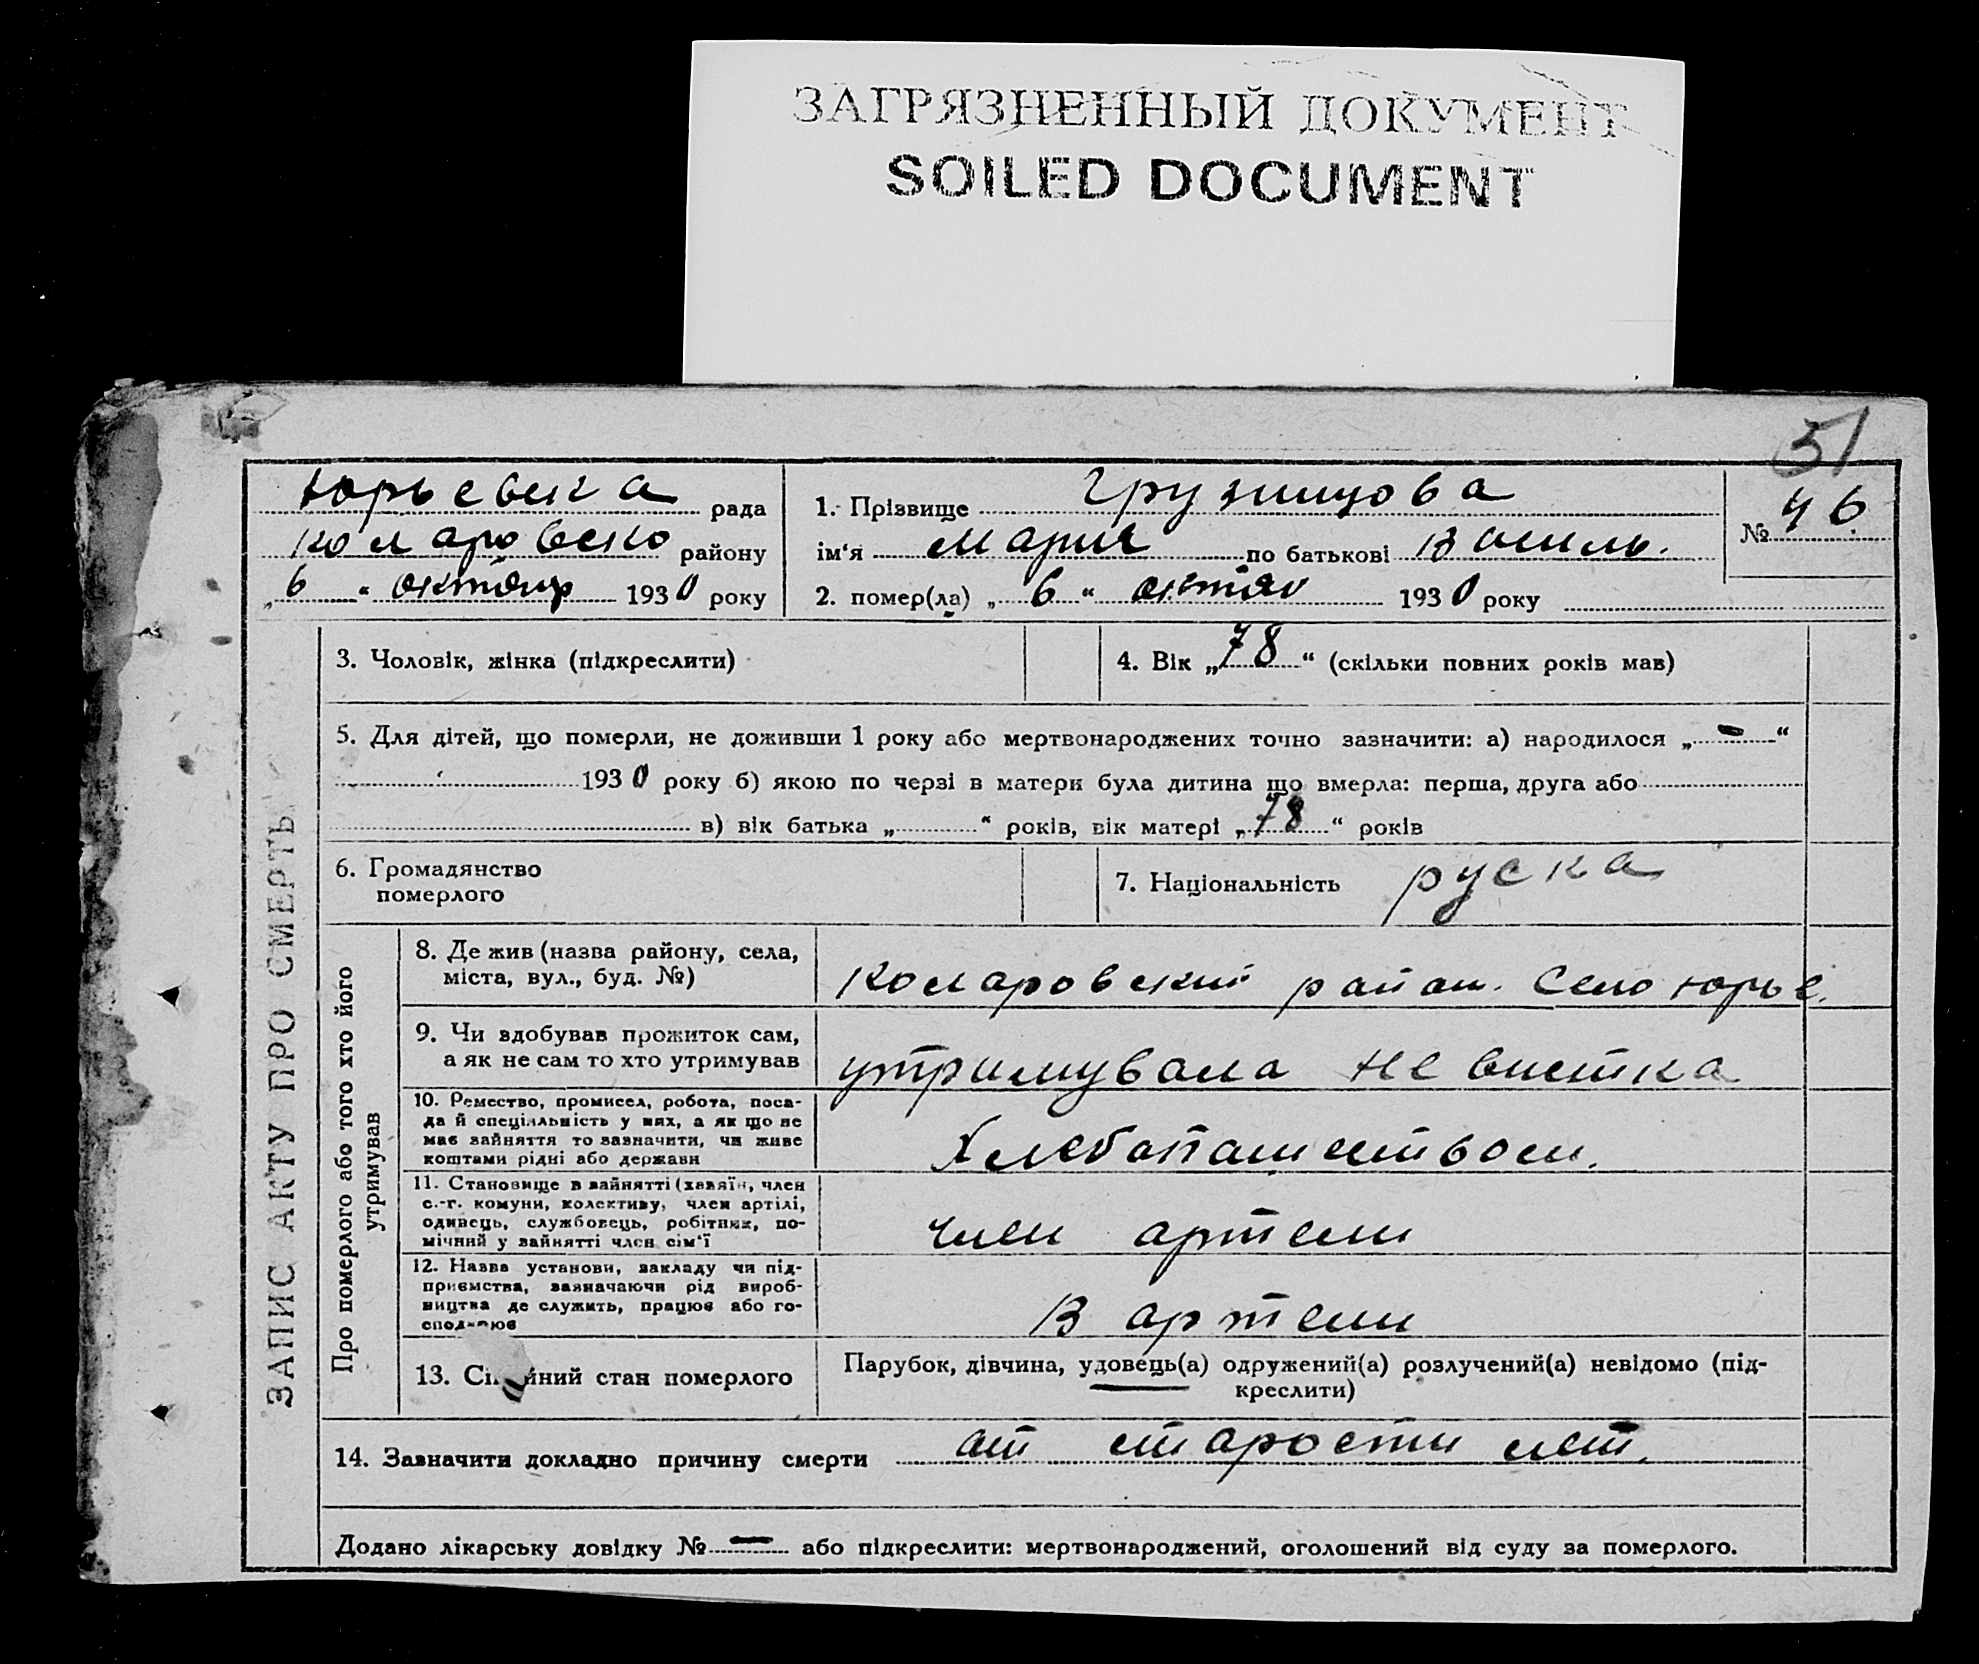 ЗАГРЯЗНЕННЫЙ ДОКУМЕНТ
SOILED DOCUMENT
51
Юрьевска рада
Коларовско району
„6“ октябр 1930 року
1. Прізвище
ім‘я Мария по батькові Василь.
2. помер(ла) „6“ октяб 1930 року
№ 46
ЗАПИС АКТУ ПРО СМЕРТЬ
3. Чоловік, жінка (підкреслити)
4. Вік „78“ (скільки повних років мав)
5. Для дітей, що померли, не доживши 1 року або мертвонароджених точно зазначити: а) народилося „–“
1930 року б) якою по черзі в матери була дитина що вмерла: перша, друга або
в) вік батька „ “ років, вік матері „78“ років
6. Громадянство
померлого
7. Національність руска
Про померлого або того хто його
утримував
8. Де жив (назва району, села,
міста, вул., буд. №)
Коларовский район. Село Юрье.
9. Чи здобував прожиток сам,
а як не сам то хто утримував
утримувала невистка
10. Ремество, промисел, робота, поса-
да й спеціяльність у них, а як що не
має зайняття то зазначити, чи живе
коштами рідні або держави
Хлебопашеством.
11. Становище в зайнятті (хазяїн, член
с.-г. комуни, колективу, член артілі,
одинець, службовець, робітник, по-
мічний у зайнятті член сім‘ї
член артели
12. Назва установи, закладу чи під-
приємства, зазначаючи рід вироб-
ництва де служить, працює або го-
сподарює
В артели
13. Сімейний стан померлого
Парубок, дівчина, удовець(а) одружений(а) розлучений(а) невідомо (під-
креслити)
14. Зазначити докладно причину смерти от старости лет.
Додано лікарську довідку № – або підкреслити: мертвонароджений, оголошений від суду за померлого.